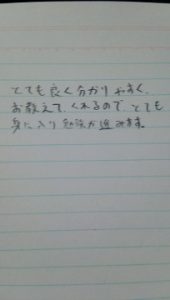 とても良く分かりやすく、
お教えて、くれるので、とても
身に入り勉強が進みます。